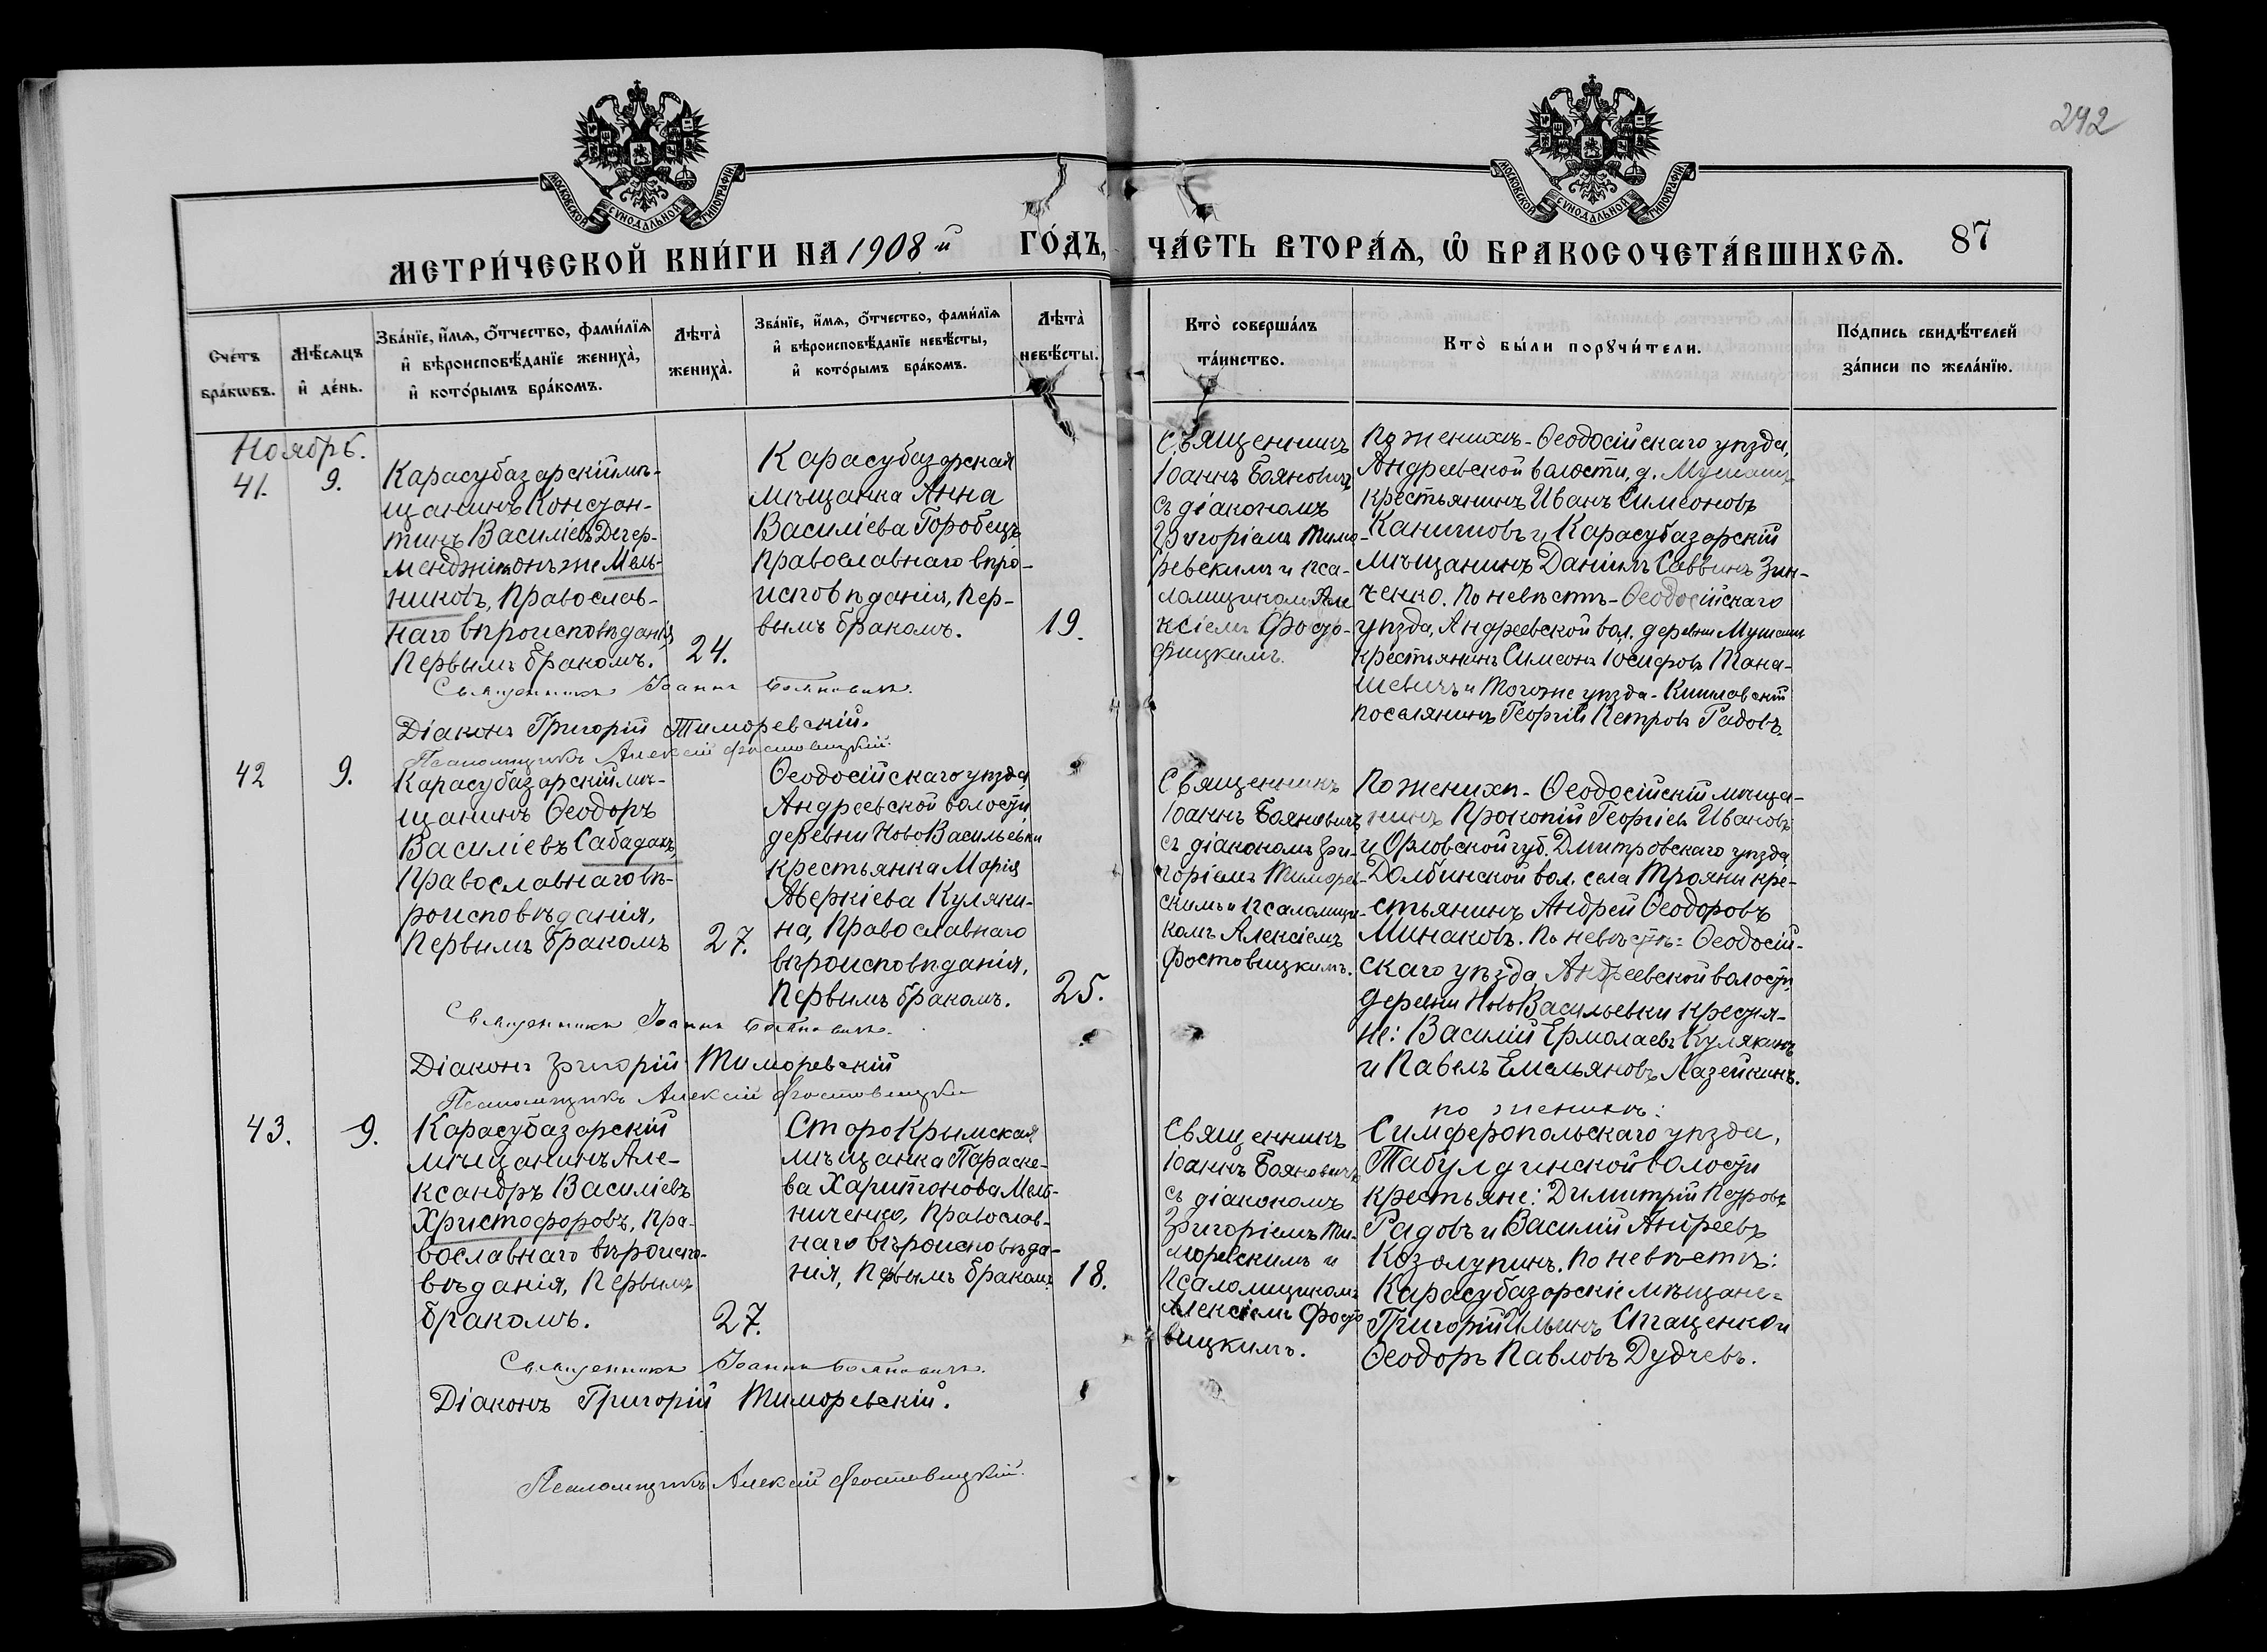 292
МОСКОВСКОЙ СУНОДАЛЬНОЙ ТИПОГРАФІИ
МОСКОВСКОЙ СУНОДАЛЬНОЙ ТИПОГРАФІИ
МЕТРИ́ЧЕСКОЙ КНИ́ГИ НА 1908й ГО́ДЪ,
ЧА́СТЬ ВТОРА́Ѧ, Ѽ БРАКОСОЧЕТА́ВШИХСѦ. 87
Сче́тъ
бра́кѡвъ.
Мѣ́сѧцъ
и҆ де́нь.
Зва́нїе, и҆́мѧ, ѻ҆́тчество, фами́лїѧ
и҆ вѣроисповѣ́данїе жениха̀,
и҆ кото́рымъ бра́комъ.
Лѣта̀
жениха̀.
Зва́нїе, и҆́мѧ, ѻ҆́тчество, фами́лїѧ
и҆ вѣроисповѣ́данїе невѣ́сты,
и҆ кото́рымъ бра́комъ.
Лѣта̀
невѣ́сты.
Кто̀ соверша́лъ
та́инство.
Кто̀ бы́ли порꙋчи́тели.
По́дпись свидѣ́телей
за́писи по жела́нїю.
Ноябрь.
41.
9.
Карасубазарскій мѣ-
щанинъ Констан-
тинъ Василіевъ Дегер-
менджи онъ же Мель-
никовъ, Православ-
наго вѣроисповѣданія,
Первымъ бракомъ.
24.
Карасубазарская
мѣщанка Анна
Василіева Горобецъ
Православнаго вѣро-
исповѣданія, Пер-
вымъ бракомъ.
19.
Священникъ
Іоаннъ Бояновичъ
съ діакономъ
Григоріемъ Тимо-
ревскимъ и пса-
ломщикомъ Але
ксіемъ
По женихѣ - Ѳеодосійскаго уѣзда,
Андреевской волости, д.
крестьянинъ Иванъ Симеоновъ
и Карасубазарскій
мѣщанинъ Даніилъ Саввинъ Зин-
ченко. По невѣстѣ - Ѳеодосійскаго
уѣзда, Андреевской вол. деревни
крестьянинъ Симеонъ Іосифовъ Тана-
шевичъ и того же уѣзда - Кишлавскій
поселянинъ Георгій Петровъ Радовъ.
Священникъ Іоаннъ Бояновичъ.
Діаконъ Григорій Тиморевскій.
Псаломщикъ Алексій Фостовицкій.
42
9.
Карасубазарскій мѣ-
щанинъ Ѳеодоръ
Василіевъ Сабадахъ,
Православнаго вѣ-
роисповѣданія,
Первымъ бракомъ
27.
Ѳеодосійскаго уѣзда,
Андреевской волости,
деревни НовоВасильевки
крестьянка Марія
Аверкіева Куляки-
на, Православнаго
вѣроисповѣданія,
Первымъ бракомъ.
25.
Священникъ
Іоаннъ Бояновичъ
съ діакономъ Гри-
горіемъ Тиморев-
скимъ и псаломщи-
комъ Алексіемъ
Фостовицкимъ.
По женихѣ - Ѳеодосійскій мѣща-
нинъ Прокопій Георгіевъ Ивановъ
и Орловской губ. Дмитровскаго уѣзда
Долбинской вол. села Трояни кре-
стьянинъ Андрей Ѳеодоровъ
Минаковъ. По невѣстѣ: Ѳеодосій-
скаго уѣзда, Андреевской волости,
деревни НовоВасильевки крестья-
не: Василій Ермолаевъ Кулякинъ
и Павелъ Емельяновъ Лазейкинъ.
Священникъ Іоаннъ Бояновичъ.
Діаконъ Григорій Тиморевскій
Псаломщикъ Алексій Фостовицкій
43.
9.
Карасубазарскій
мѣщанинъ Але-
ксандръ Василіевъ
Христофоровъ, Пра-
вославнаго вѣроиспо-
вѣданія, Первымъ
бракомъ.
27.
СтароКрымская
мѣщанка Параске-
ва Харитонова Мель-
ниченко, Православ-
наго вѣроисповѣда-
нія, Первымъ бракомъ.
18.
Священникъ
Іоаннъ Бояновичъ
съ діакономъ
Григоріемъ Ти-
моревскимъ и
Псаломщикомъ
Алексіемъ Фосто
вицкимъ.
по женихѣ:
Симферопольскаго уѣзда,
Табулдинской волости
крестьяне: Димитрій Петровъ
Радовъ и Василій Андреевъ
Козолупинъ. По невѣстѣ:
Карасубазарскіе мѣщане=
Григорій Ильинъ Стаценко и
Ѳеодоръ Павловъ Дудчевъ.
Священникъ Іоаннъ Бояновичъ.
Діаконъ Григорій Тиморевскій.
Псаломщикъ Алексій Фостовицкій.